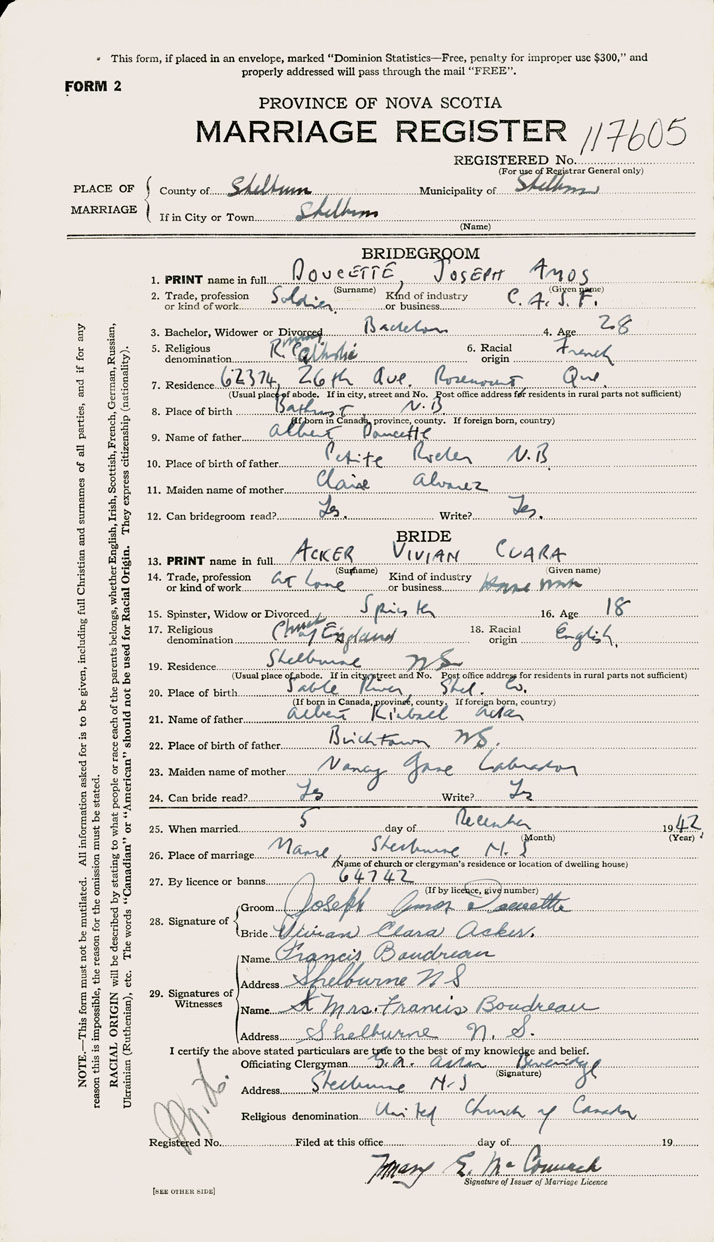 * This form, if placed in an envelope, marked "Dominion Statistics—Free, penalty for improper use $300," and
properly addressed will pass through the mail "FREE".
FORM 2
PROVINCE OF NOVA SCOTIA
MARRIAGE REGISTER 117605
REGISTERED No.
(For use of Registrar General only)
PLACE OF MARRIAGE
County of Shelburn Municipality of Shelburn
If in City or Town Shelburn
(Name)
BRIDEGROOM
1. PRINT name in full DOUCETTE, JOSEPH AMOS
(Surname) (Given name)
2. Trade, profession or kind of work Soldier Kind of industry or business C. A. S. F.
3. Bachelor, Widower or Divorced Bachelor 4. Age 28
5. Religious denomination Roman Catholic 6. Racial origin French
7. Residence 62374, 26th Ave. Rosemount Que.
(Usual place of abode. If in city, street and No. Post office address for residents in rural parts not sufficient)
8. Place of birth Bathurst N.B.
(If born in Canada, province, county. If foreign born, country)
9. Name of father Albert Doucette
10. Place of birth of father Petite Rocher N.B
11. Maiden name of mother Claire Alvarez
12. Can bridegroom read? Yes. Write? Yes.
BRIDE
13. PRINT name in full ACKER VIVIAN CLARA
(Surname) (Given name)
14. Trade, profession or kind of work at home Kind of industry or business Home work
15. Spinster, Widow or Divorced Spinster 16. Age 18
17. Religious denomination Church of England 18. Racial origin English.
19. Residence Shelburne NS
(Usual place of abode. If in city, street and No. Post office address for residents in rural parts not sufficient)
20. Place of birth Sable River, Shel. Co.
(If born in Canada, province, county. If foreign born, country)
21. Name of father Albert Acker
22. Place of birth of father Birchtown NS.
23. Maiden name of mother Nancy Jane Labrador
24. Can bride read? Yes Write? Yes
25. When married 5 day of December 1942
(Month) (Year)
26. Place of marriage Manse, Shelburne N.S
(Name of church or clergyman's residence or location of dwelling house)
27. By licence or banns 64742
(If by licence, give number)
28. Signature of
Groom Joseph Amos Doucette
Bride Vivian Clara Acker.
29. Signatures of Witnesses
Name Francis Boudreau
Address Shelburne N S
Name Mrs. Francis Boudreau
Address Shelburne N. S.
I certify the above stated particulars are true to the best of my knowledge and belief.
Officiating Clergyman Beveridge
(Signature)
Address Shelburne N.S
Religious denomination United Church of Canada
Registered No. Filed at this office day of 19
Mary E. McCormack
Signature of Issuer of Marriage Licence
[SEE OTHER SIDE]
NOTE.—This form must not be mutilated. All information asked for is to be given, including full Christian and surnames of all parties, and if for any
reason this is impossible, the reason for the omission must be stated.
RACIAL ORIGIN will be described by stating to what people or race each of the parents belongs, whether English, Irish, Scottish, French, German, Russian,
Ukrainian (Ruthenian), etc. The words "Canadian" or "American" should not be used for Racial Origin. They express citizenship (nationality).